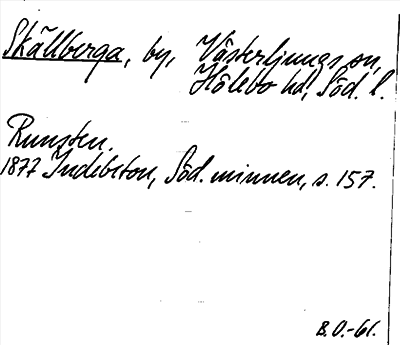 Skällberga, by, Västerljungs sn,
Hölebo hd, Söd. l.
Runsten.
1877 Indebetou, Söd. minnen, s. 157.
B.O.-61.